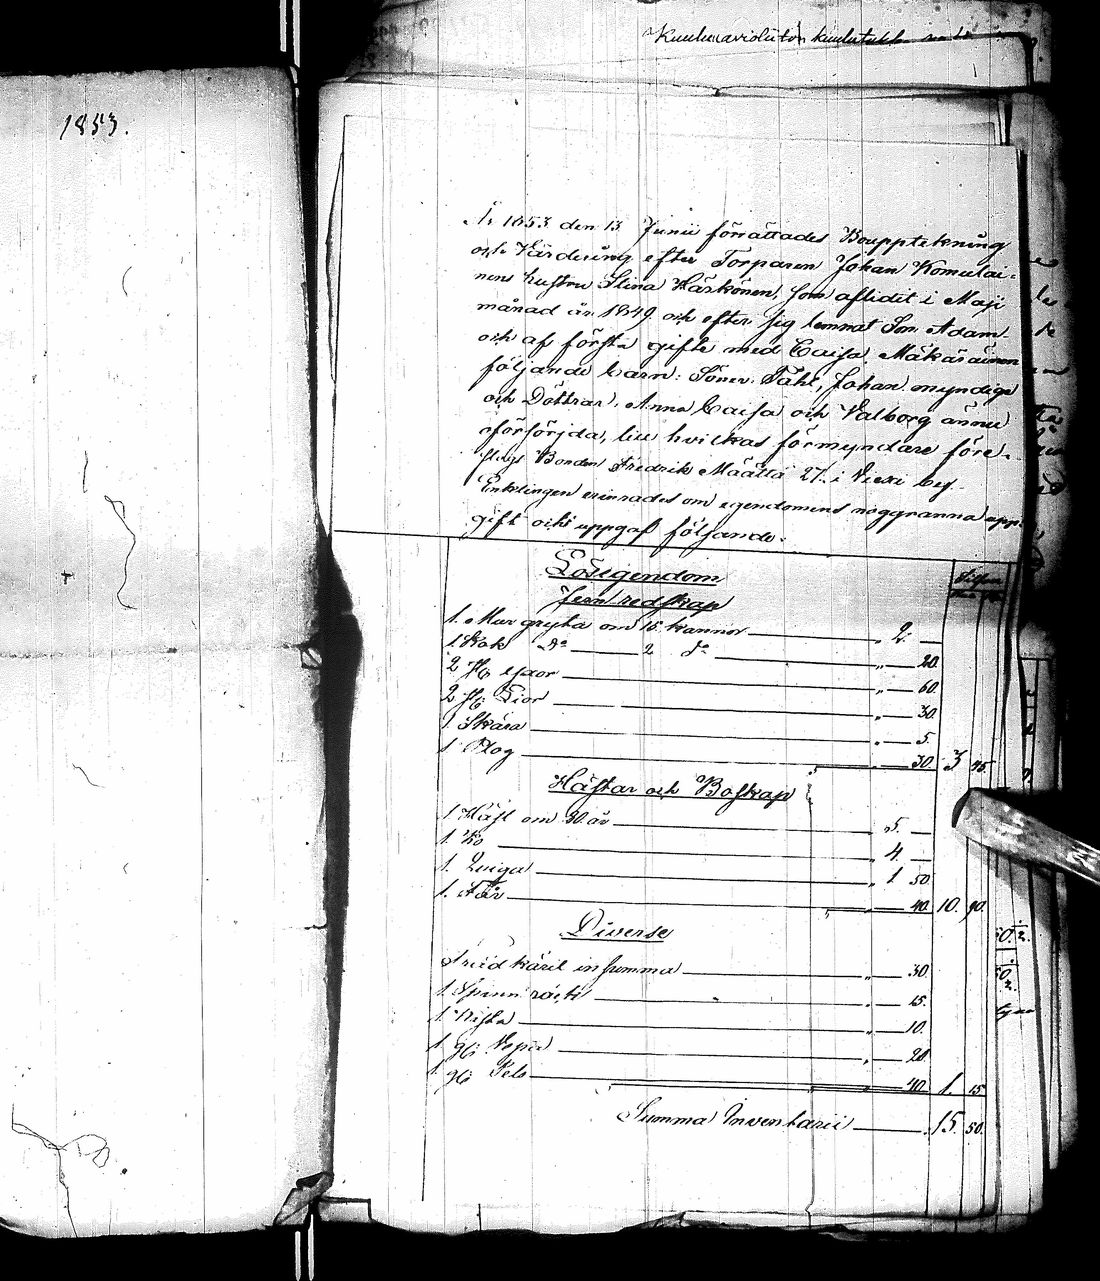 1853.
År 1853 den 13 Junii förrättades Bouppteckning
och Värdering efter Torparen Johan Komulai-
nens hustru Stina Härkönen, som aflidit i Maji
månad år 1849 och efter sig lemnat Son Adam
och af förste gifte med Caisa Mäkäräinen
följande barn: Söner: Påhl, Johan myndige
och Döttrar, Anna Caisa och Valborg ännu
oförsörjda, till hvilkas förmyndare före-
slogs Bonden Fredrik Määttä 27. i
Enklingen erinrades om egendomens noggranna upp-
gift och uppgaf följande.
Lösegendom
Jern redskap
1. Mur gryta om 15. kannor " 2. —
1. Kok do 2 do " — 20.
2 st yxor " — 60.
2 st Lior " — 30.
1. Skära " — 5.
1. Plog " — 30. 3 45.
Hästar och Boskap
1. Häst om 30. år " 5. —
1. Ko " 4. —
1. Quiga " 1. 50
1. Får " — 40. 10. 90.
Diverse
Träd käril in summa " — 30.
1. Spinn råck " — 15.
1. Kista " — 10.
1. gl. " — 20
1. gl. Pels " — 40. 1. 15
Summa Inventarii 15. 50.